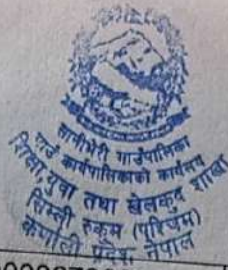 सानीभेरी गाउँपालिका
गाउँ कार्यपालिकाको कार्यालय
शिक्षा, युवा तथा खेलकुद शाखा
सिम्ली रुकुम (पश्चिम)
कर्णाली प्रदेश, नेपाल